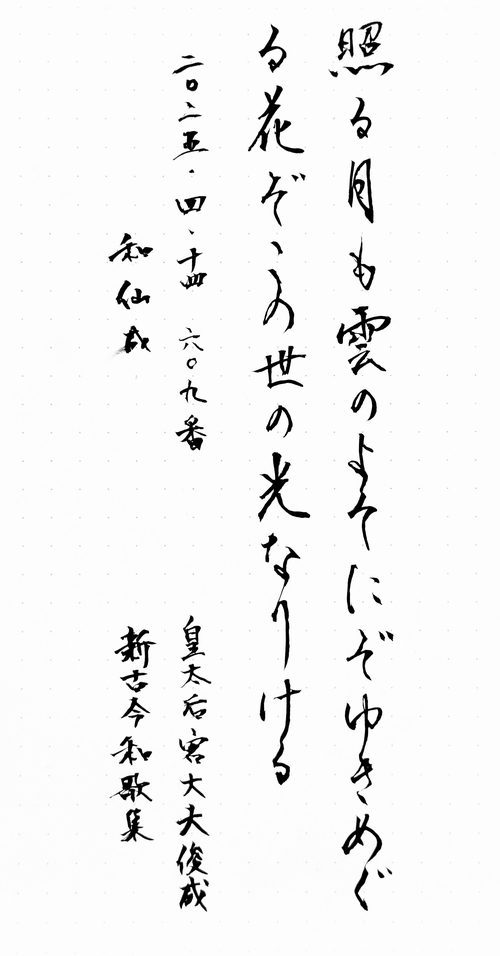 照る月も雲のよそにぞゆきめぐ
る花ぞこの世の光なりける
二〇二五・四・十四 六〇九番 皇太后宮大夫俊成
和仙成 新古今和歌集